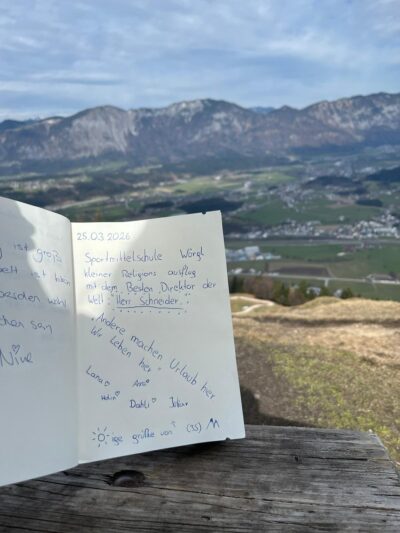 ist große
welt ist
wohl
Nive
25.03.2026
Sportmittelschule Wörgl
kleiner Religions ausflug
mit dem Besten Direktor der
Welt: "Herr Schneider."
"Andere machen Urlaub hier
Wir leben hier"
Lana Ana
Helin
Dahli Jakur
ige grüße von (3S)